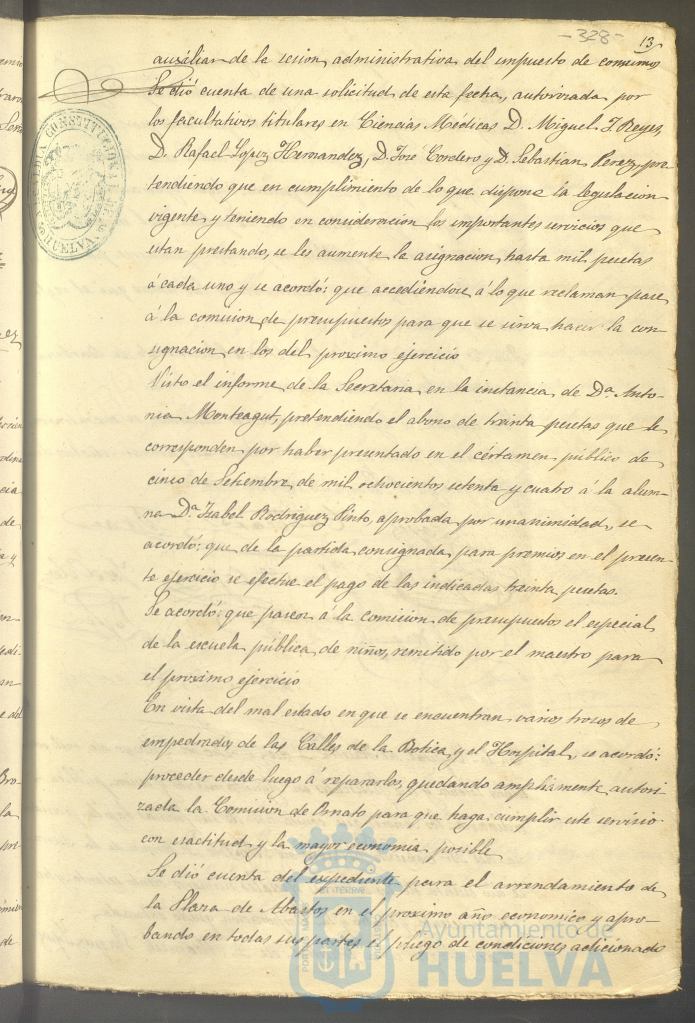 -328-
13
auxiliar de la secion administrativa del impuesto de consumos
Se dió cuenta de una solicitud de esta fecha, autorizada por
los facultativos titulares en Ciencias Médicas D. Miguel J. Reyes,
D. Rafael Lopez Hernandez, D. José Cordero y D. Sebastian Perez, pre-
tendiendo que en cumplimiento de lo que dispone la legislacion
vigente y teniendo en consideracion los importantes servicios que
estan prestando, se les aumente la asignacion hasta mil pesetas
á cada uno y se acordó: que accediéndose á lo que reclaman pase
á la comision de presupuestos para que se sirva hacer la con-
signacion en los del proximo ejercicio
Visto el informe de la Secretaria en la instancia de Dª. Anto-
nia Monteagut, pretendiendo el abono de treinta pesetas que le
corresponden por haber presentado en el cértamen público de
cinco de Setiembre de mil ochocientos setenta y cuatro á la alum-
na Dª. Izabel Rodriguez Pinto, aprobada por unanimidad, se
acordó: que de la partida consignada para premios en el presen-
te ejercicio se efectue el pago de las indicadas treinta pesetas.
Se acordó: que pasen á la comision de presupuestos el especial
de la escuela pública de niños, remitido por el maestro para
el proximo ejercicio
En vista del mal estado en que se encuentran varios trozos de
empedrados de las Calles de la Botica y el Hospital, se acordó:
proceder desde luego á repararlos, quedando ampliamente autori-
zada la Comision de Ornato para que haga cumplir este servicio
con esactitud y la mayor economia posible
Se dió cuenta del expediente para el arrendamiento de
la Plaza de Abastos en el proximo año economico y apro-
bando en todas sus partes el pliego de condiciones adicionado
ALCALDIA CONSTITUCIONAL DE HUELVA
Ayuntamiento de
HUELVA